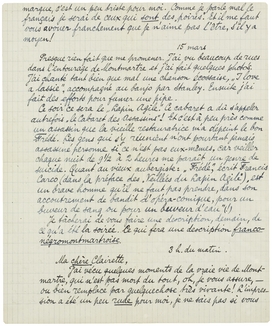 marque, c'est un peu triste pour moi. Comme je parle mal le
français je serai de ceux qui sont des poires! Et il me faut
vous avouer franchement que je n'aime pas l'être, s'il y a
moyen!
15 mars
Presque rien fait que me promener. J'ai vu beaucoup de rues
dans l'entourage de Montmartre et j'ai fait quelques photos.
J'ai chanté tant bien que mal une chanson écossaise, "I love
a lassie", accompagné au banjo par Stanley. Ensuite j'ai
fait des efforts pour fumer une pipe.
Ce soir ce sera le "Lapin Agile". Ce cabaret a dû s'appeler
autrefois, le cabaret des Assassins! Et c'est à peu près comme
un assassin que la vieille cabaretière m'a dépeint le bon
Frédé. Les gens qui s'y réunissent n'ont pourtant jamais
assassiné personne si ce n'est pas eux-mêmes, car veiller
chaque nuit de 9½ à 2 heures me paraît un genre de
suicide. Quant au vieux aubergiste: "Frédé, écrit Francis
Carco (dans la préface des "Veillées du Lapin Agile"), est
un brave homme qu'il ne faut pas prendre, dans son
accoutrement de bandit d'opéra-comique, pour un
buveur de sang ou pour un buveur d'eau"!
Je tâcherai de vous faire une description, demain, de
ce qu'a été la soirée. Ce qui fera une description franco-
negromontmartroise.
3 h. du matin.
Ma chère Clairette,
J'ai vécu quelques moments de la vraie vie de Mont-
martre, qui n'est pas mort du tout, oh, je vous assure, —
ou bien remplacé par quelquechose très vivante! L'impres-
sion a été un peu rude pour moi, je ne fais pas si vous